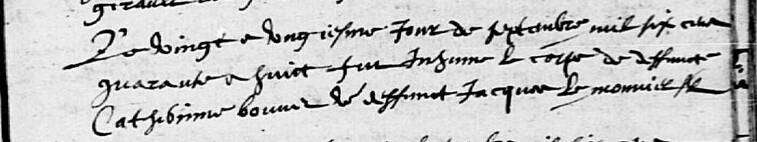 Le vingt e ungiesme Jour de septanbre mil six cens
quarante e huict fut Inhumé le corps de deffuncte
Catherinne bouvier de deffunct Jacques le monnier